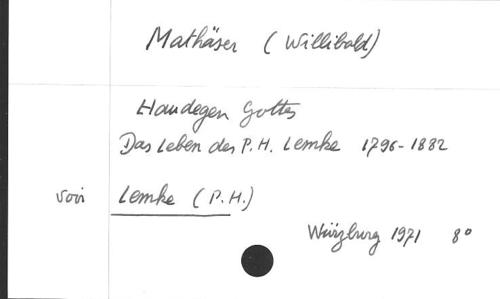 Mathäser (Willibald)
Haudegen Gottes
Das Leben des P. H. Lemke 1796-1882
voir Lemke (P. H.)
Würzburg 1971 8°